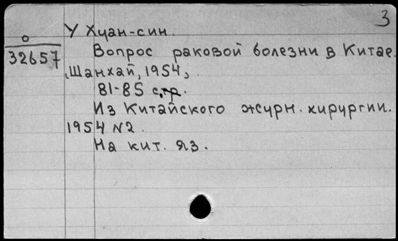 3
У Хуан-син.
о
32657
Вопрос раковой болезни в Китае.
Шанхай, 1954,
81-85 стр.
Из Китайского журн. хирургии.
1954 №2.
На кит. яз.